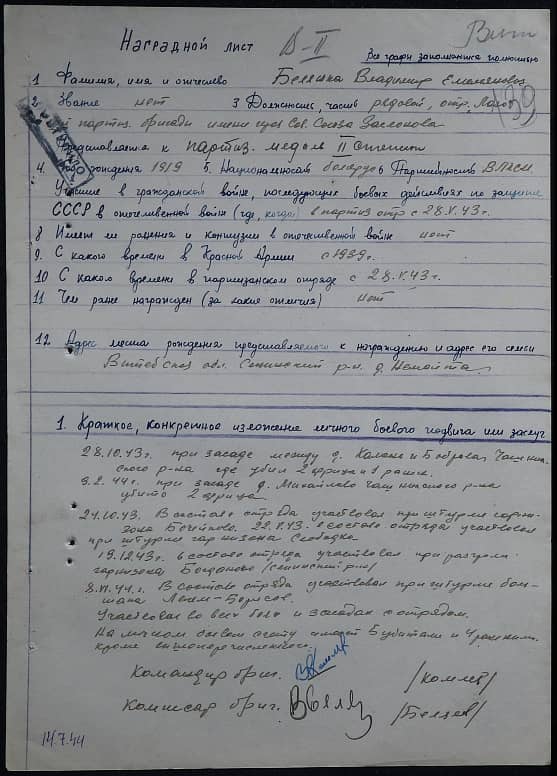 Наградной лист В-II
Все графы заполняются полностью
1 Фамилия, имя и отчество Владимир Емельянович
2. Звание нет 3 Должность, часть рядовой, отр.
партиз. бригады имени Сов. Союза Заслонова
Представляется к партиз. медали II степени
4. рождения 1919 5. Национальность беларус 6 Партийность ВЛКСМ
Участие в гражданской войне, последующих боевых действиях по защите
СССР в отечественной войне (где, когда) в партиз отр с 28.V.43г.
8 Имеет ли ранения и контузии в отечественной войне нет
9. С какого времени в Красной Армии с 1939г.
10 С какого времени в партизанском отряде с 28.V.43г.
11 Чем ранее награжден (за какие отличия) нет
12. Адрес места рождения представляемого к награждению и адрес его семьи
Витебская обл. Сеннинский р-н д. Немойта
1. Краткое, конкретное изложение личного боевого подвига или заслуг
28.10.43г. при засаде между д. и
ского р-на где убил 2 фрица и 1 ранен.
9.2.44г. при засаде д. Михайлово Чашникского р-на
убито 2 фрица
21.10.43. В составе отряда участвовал при штурме гарни-
зона 22.V.43. в составе отряда участвовал
при штурме гарнизона Слободка
19.12.43г. в составе отряда участвовал при разгроме
гарнизона Богданово (Сеннинский р-н)
8.VI.44г. В составе отряда участвовал при штурме
Участвовал во всех боях и засадах с отрядом.
На личном боевом счету имеет 5 убитыми и 4 ранеными
кроме вышеперечисленного.
Командир бриг. /Комлев/
Комиссар бриг. /Белцев/
14.7.44